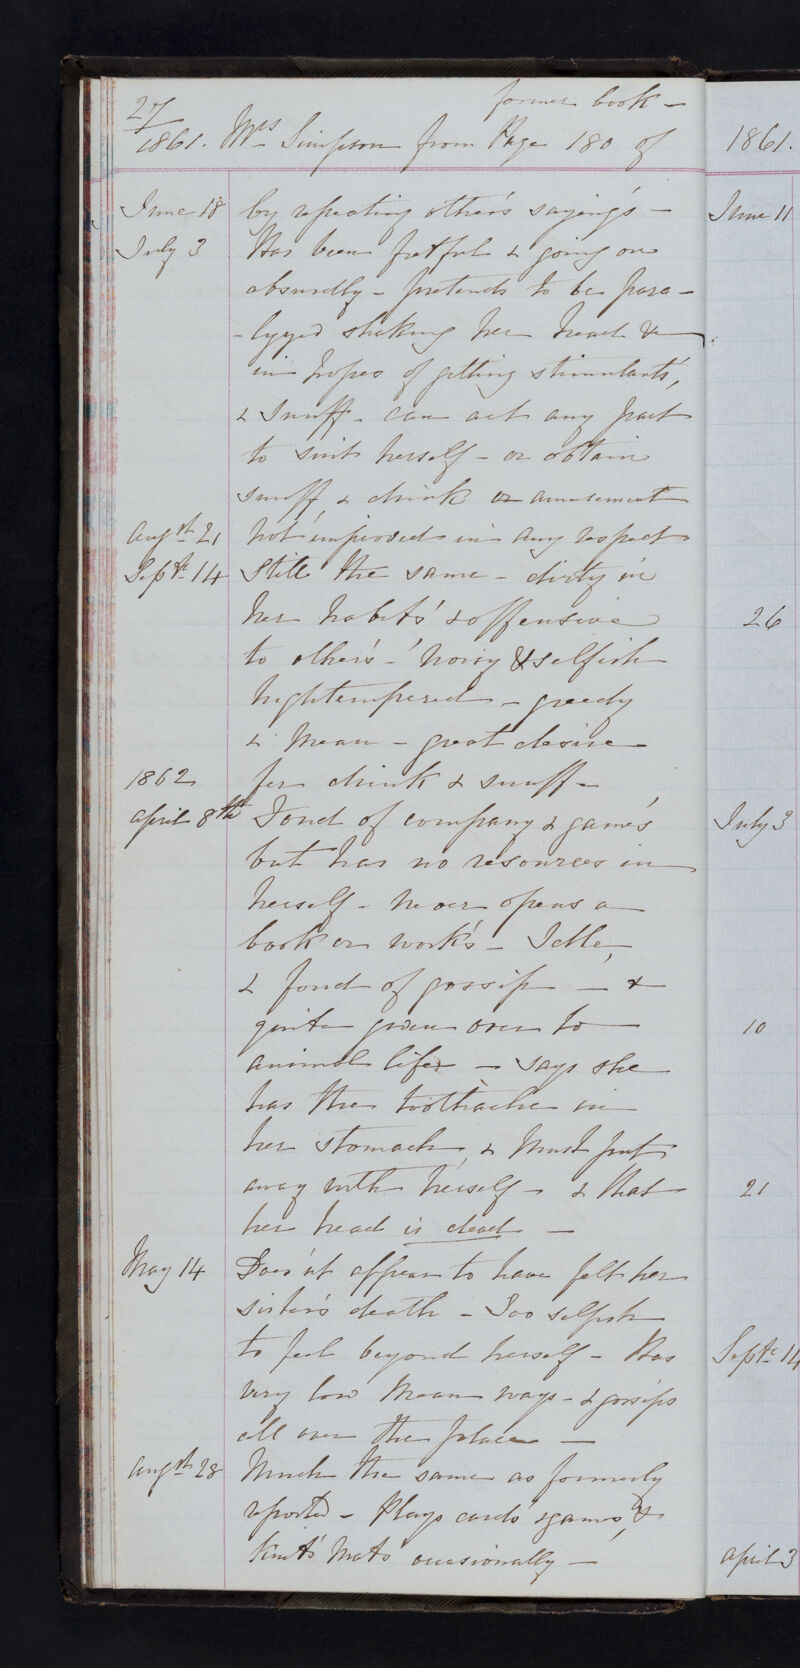 27
former book -
1861. Mrs Simpson from Page 180 of
June 18 by repeating other's saying's -
July 3 Has been fretful & going on
absurdly - pretends to be para-
-lyzed shaking her head &c
in hopes of getting stimulants',
& Snuff - can act any part
to suit herself - or obtain
snuff, & drink or amusement
Augst 21 Not improved in any respect
Septr 14 Still the same - dirty in
her habits' & offensive
to other's - noisy & selfish
hightempered - greedy
& mean - great desire
1862 for drink & snuff -
April 8th Fond of company & game's
but has no resources in
herself - never opens a
book or work's - Idle,
& fond of gossip - &
quite given over to
animal life - says she
has the toothache in
her stomach, & must put
away with herself - & that
her head is dead -
May 14 Does'nt appear to have felt her
sister's death - Too selfish
to feel beyond herself - Has
very low mean ways - & gossips
all over the place -
Augst 28 Much the same as formerly
reported - Plays cards' & games, &
Knits' Mats' occasionally -
1861.
June 11
26
July 3
10
21
Septr 14
April 3